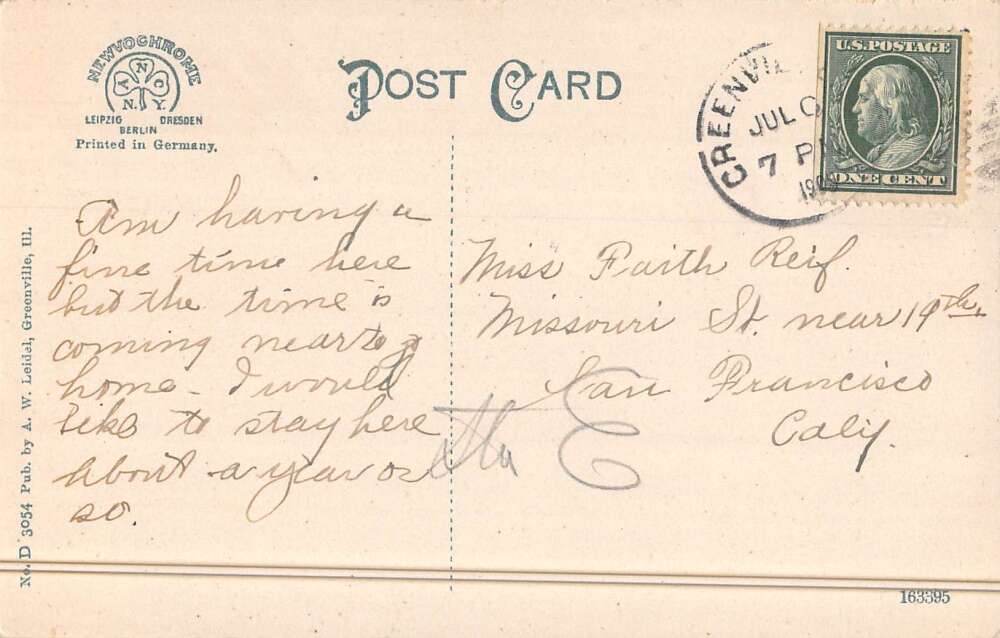 NEWVOCHROME
A N C
N. Y.
LEIPZIG DRESDEN
BERLIN
Printed in Germany.
POST CARD
GREENVIL
JUL
7 P
U.S. POSTAGE
ONE CENT
Am having a
fine time here
but the time is
coming near to go
home - I would
like to stay here
about a year or
so.
Miss Faith Reif.
Missouri St. near 19th.
San Francisco
Calif.
E
No. D 3054 Pub. by A. W. Leidel, Greenville, Ill.
163395